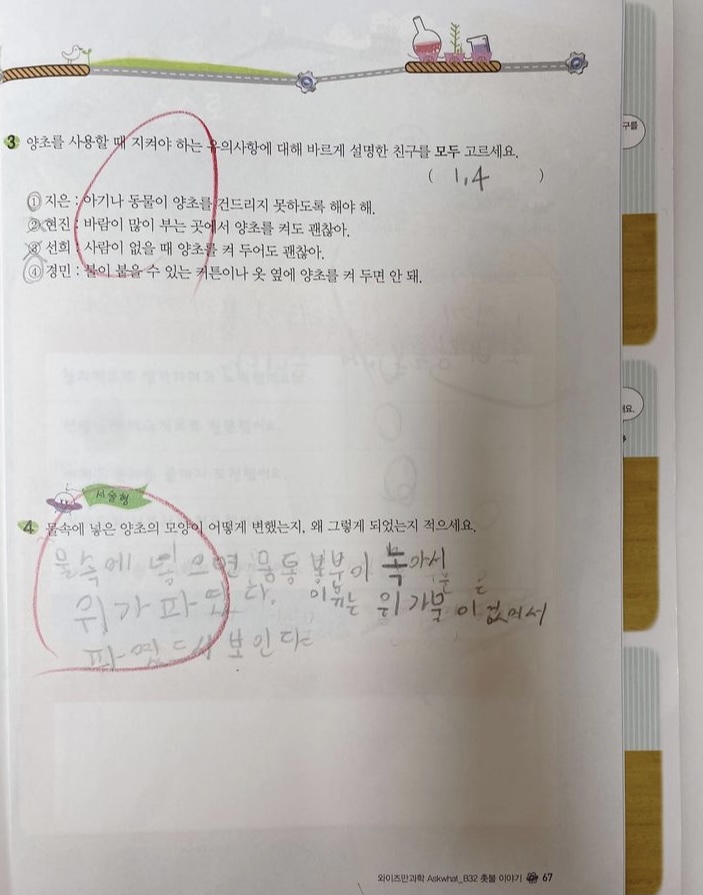 3 양초를 사용할 때 지켜야 하는 유의사항에 대해 바르게 설명한 친구를 모두 고르세요.
( 1, 4 )
① 지은 : 아기나 동물이 양초를 건드리지 못하도록 해야 해.
② 현진 : 바람이 많이 부는 곳에서 양초를 켜도 괜찮아.
③ 선희 : 사람이 없을 때 양초를 켜 두어도 괜찮아.
④ 경민 : 불이 붙을 수 있는 커튼이나 옷 옆에 양초를 켜 두면 안 돼.
서술형
4 물속에 넣은 양초의 모양이 어떻게 변했는지, 왜 그렇게 되었는지 적으세요.
물속에 넣으면 몸통 부분이 녹아서
위가 파였다. 이유는 위가
파였드시 보인다
와이즈만과학 Askwhat_B32 촛불 이야기 67
구를
요.